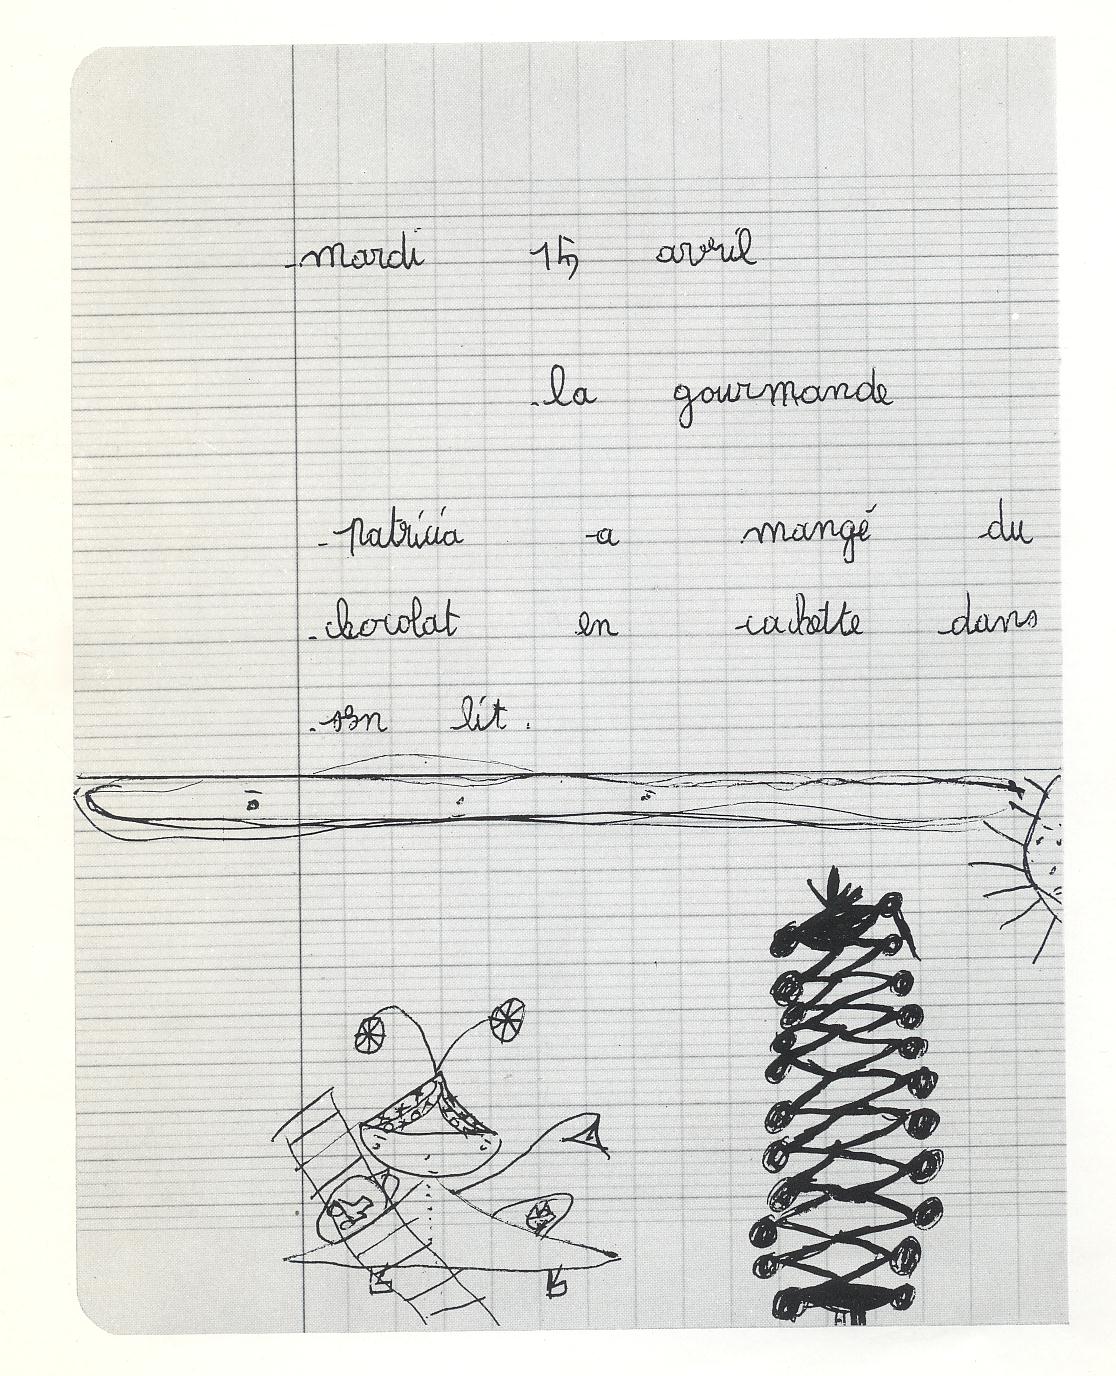 mardi 15 avril
la gourmande
patricia a mangé du
chocolat en cachette dans
son lit.